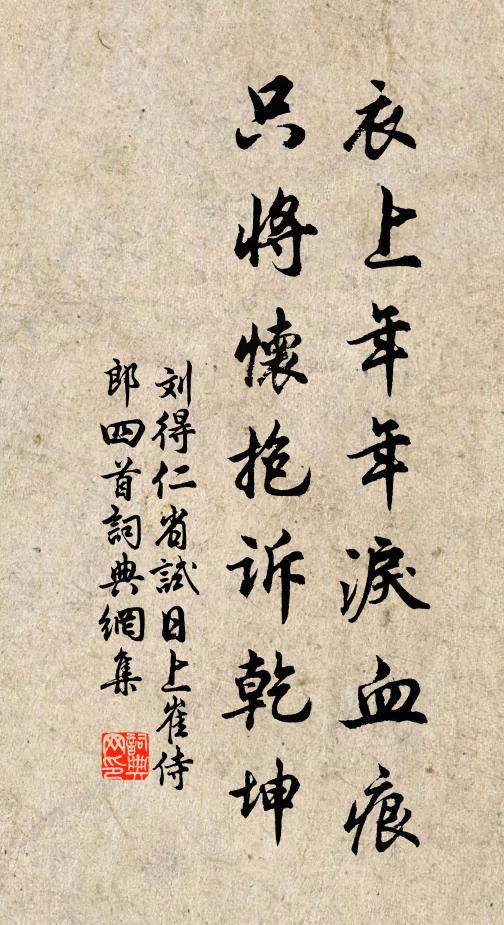 衣上年年淚血痕
只將懷抱诉乾坤
刘得仁省試日上崔侍
郎四首詞典網集
詞典
网印